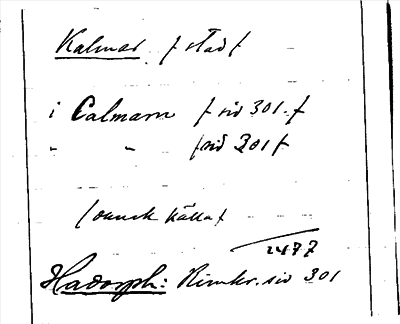 Kalmar / stad /
i Calmarn / sid 301. /
" " / sid 301 /
/ dansk källa /
1477
Hadorph: Rimkr. sid 301